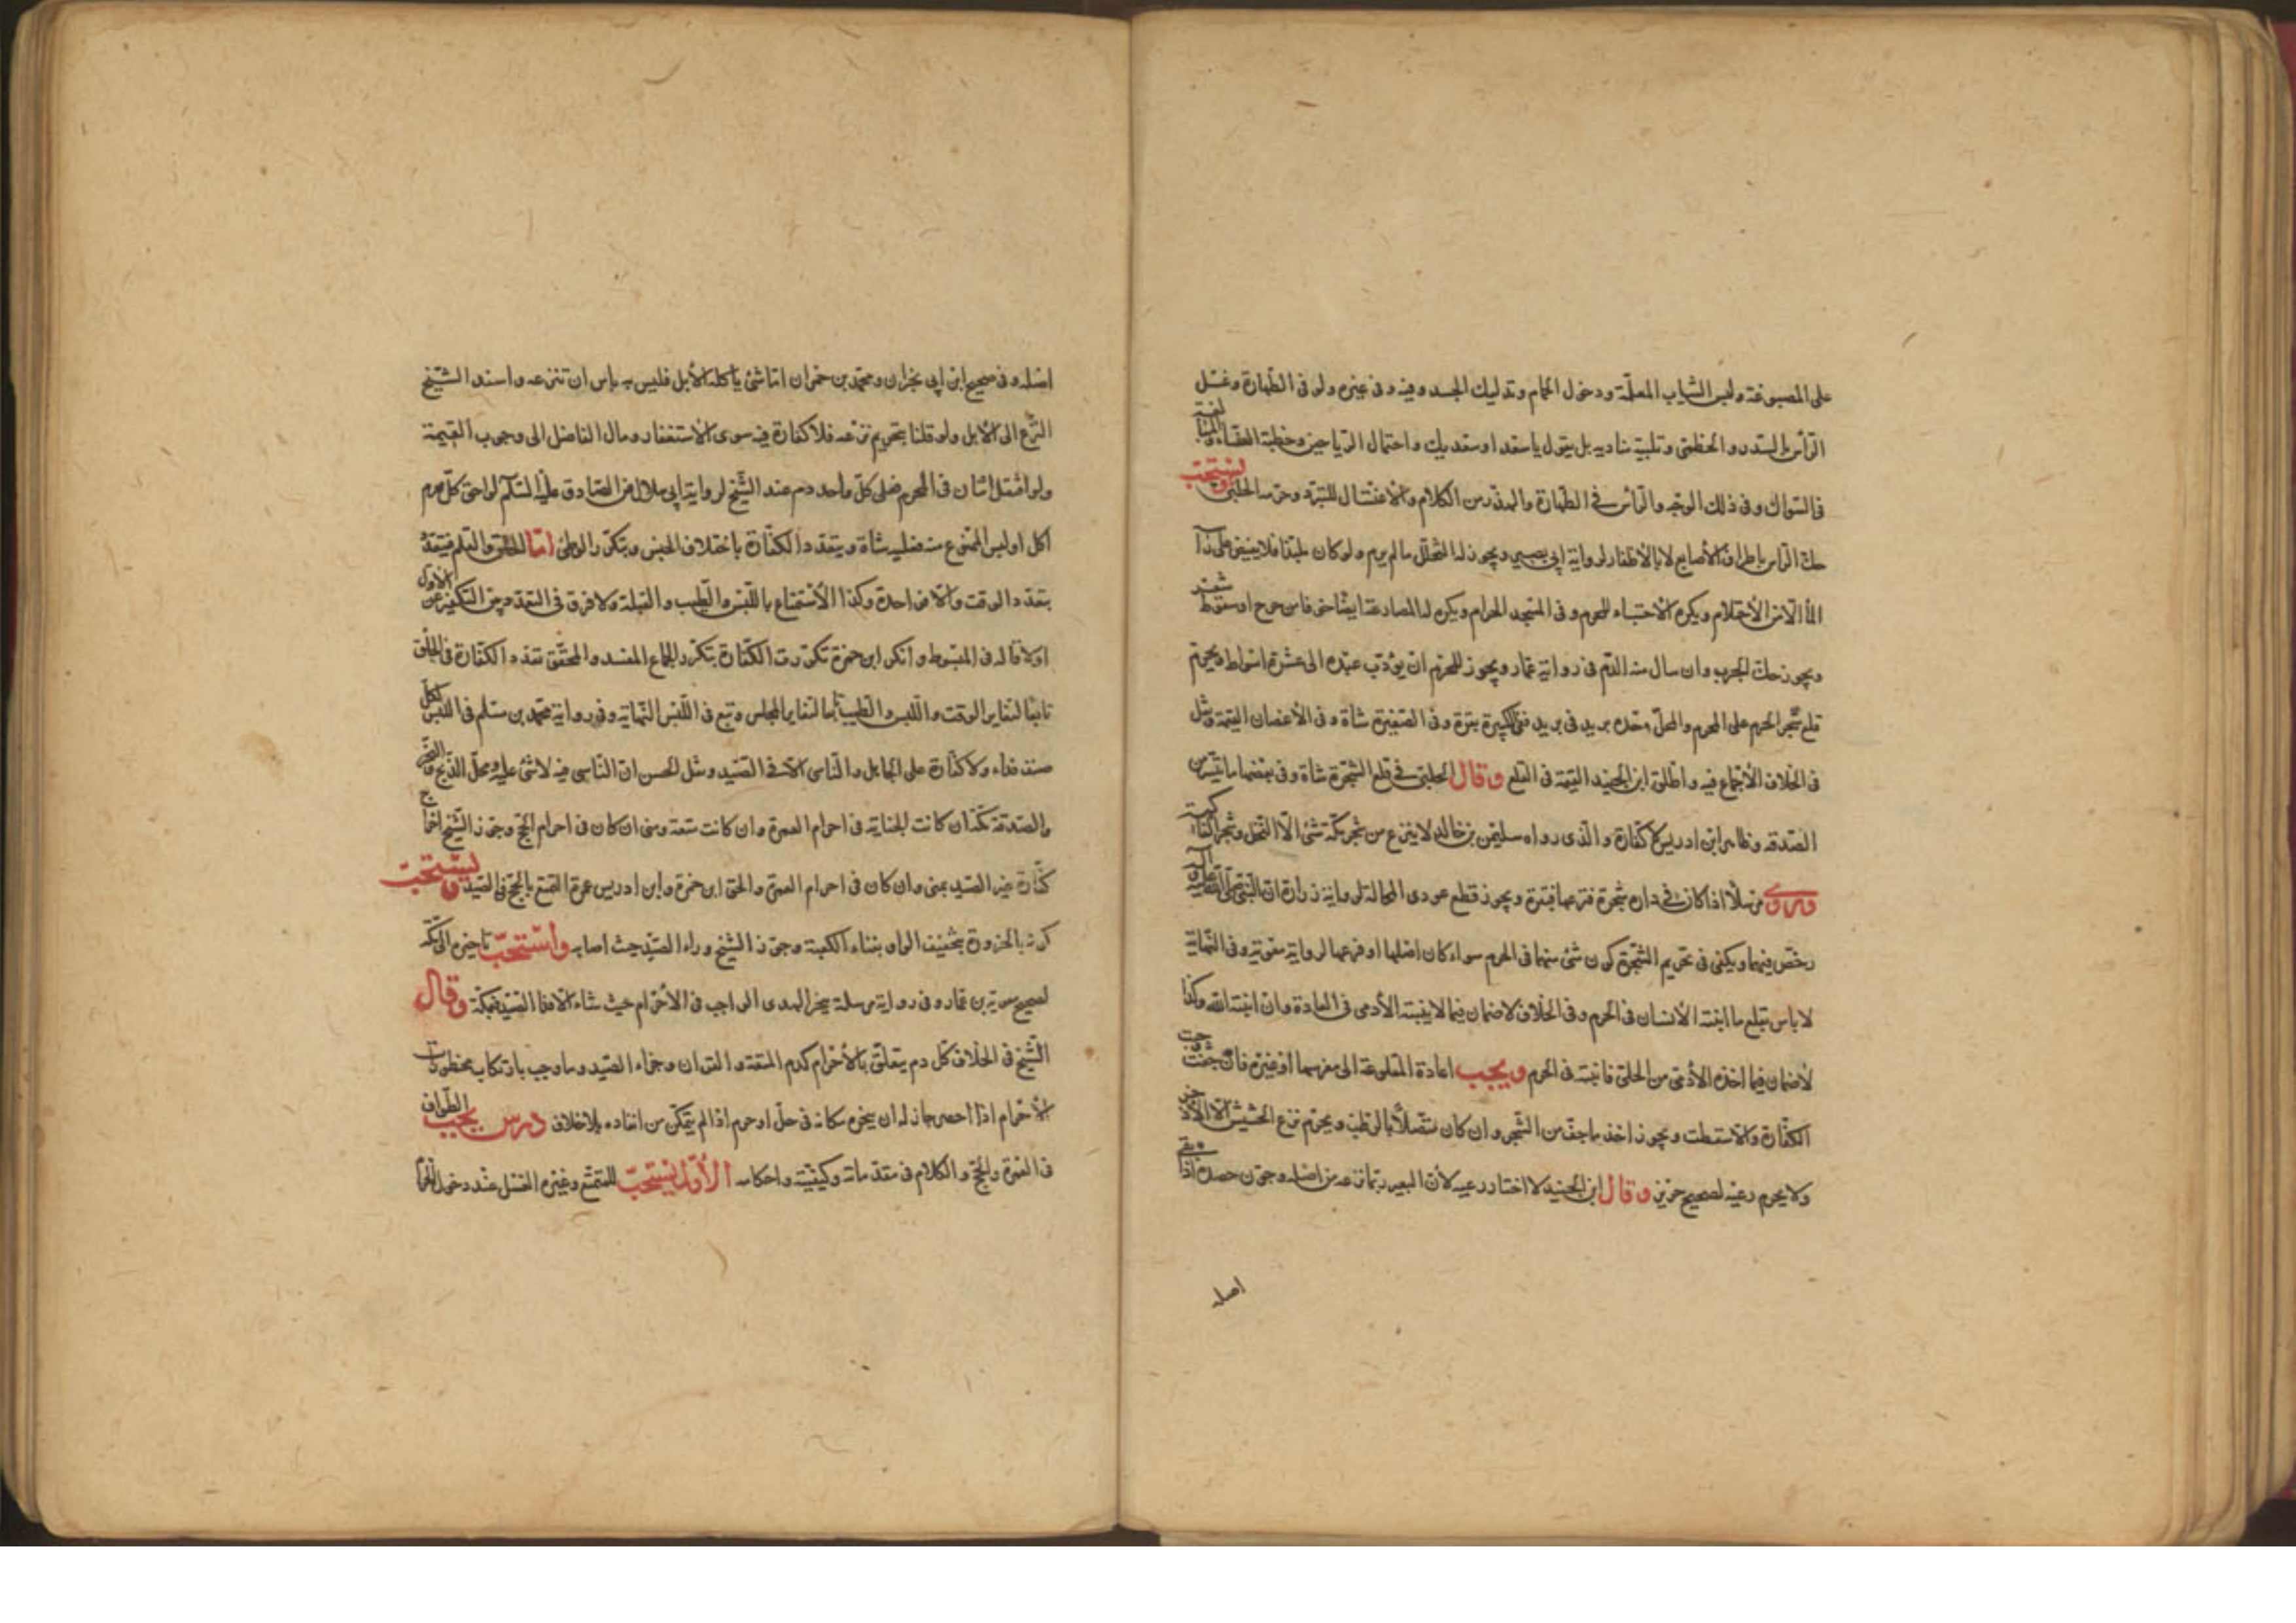 على المصبوغة ولبس الثياب المعلّمة ودخول الحمام وتدليك الجسد وفيه وفى غيره ولو فى الطهارة وغسل
الرأس بالسدر والخطمى وتلبية مناديه بل يقول يا سعد او سعديك واحتمال الرياحين وخطبة النساء والمبالغة
فى السواك وفى ذلك الوجه والرأس فى الطهارة والهذر من الكلام والاغتسال للتبرد وحرمه الحلبى ويستحب
حك الرأس باطراف الأصابع لا بالاظفار لرواية ابى بصير ويجوز له التخلل ما لم يدم ولو كان ملبدا فلا يفيض على رأسه
الماء الا من الاحتلام ويكره الاحتباء للمحرم وفى المسجد الحرام ويكره له المصارعة ايضا خوفا من جرح او سقوط شعر
ويجوز حك الجرب وان سال منه الدم فى رواية عمار ويجوز للمحرم ان يؤدب عبده الى عشرة اسواط ويحرم
قلع شجر الحرم على المحرم والمحل وحده بريد فى بريد ففى الكبيرة بقرة وفى الصغيرة شاة وفى الأغصان القيمة ونقل
فى الخلاف الأجماع فيه واطلق ابن الجنيد القيمة فى القلع وقال الحلبى فى قلع الشجرة شاة وفى بعضها ما تيسر من
الصدقة وظاهر ابن ادريس لا كفارة والذى رواه سليمن بن خالد لا ينزع من شجر مكة شئ الا النخل وشجر الفاكهة
وروى مرسلا اذا كان فى داره شجرة فنزعها فبقرة ويجوز قطع عودى المحالة لرواية زرارة ان النبى صلى الله عليه وآله
رخص فيهما ويكفى فى تحريم الشجرة كون شئ منها فى الحرم سواء كان اصلها او فرعها لرواية معوية وفى النهاية
لا باس بقلع ما انبته الأنسان فى الحرم وفى الخلاف لا ضمان فيما لا ينبته الأدمى فى العادة وان انبته الله وكذا
لا ضمان فيما اخذه الأدمى من الحل فانبته فى الحرم ويجب اعادة المقلوعة الى مغرسها او غيره فان جفت وجبت
الكفارة والا سقطت ويجوز اخذ ما جف من الشجر وان كان متصلا بالرطب ويحرم نزع الحشيش الا الأذخر
ولا يحرم رعيه لصحيح حريز وقال ابن الجنيد لا اختار رعيه لأن البعير ربما نزعه من اصله وجوز حصده اذا بقى
اصله
اصله وفى صحيح ابن ابى نجران ومحمد بن حمران اما شئ ياكله الأبل فليس به باس ان تنزعه واسند الشيخ
النزع الى الأبل ولو قلنا بتحريم نزعه فلا كفارة فيه سوى الأستغفار ومال الفاضل الى وجوب القيمة
ولو اقتتل اثنان فى المحرم فعلى كل واحد دم عند الشيخ لرواية ابى هلال عن الصادق عليه السلم لواحق كل محرم
اكل او لبس الممنوع منه فعليه شاة ويتعدد الكفارة باختلاف الجنس وبتكرر الوطئ اما الحلق والقلم فيتعدد
بتعدد الوقت والا فواحدة وكذا الأستمتاع باللبس والطيب والقبلة ولا فرق فى التعدد بين التكفير عن الأول
او لا قاله فى المبسوط وانكر ابن حمزة تكررت الكفارة بتكرر الجماع المفسد والمحقق تعدد الكفارة فى الحلق
تابعًا لتغاير الوقت واللبس والطيب تابعا لتغاير المجلس وتبع فى اللبس النهاية وفى رواية محمد بن مسلم فى اللبس لكل
صنف فداء ولا كفارة على الجاهل والناسى الا فى الصيد ونقل الحسن ان الناسى فيه لا شئ عليه ومحل الذبح والنحر
والصدقة مكة ان كانت الجناية فى احرام العمرة وان كانت متعة ومنى ان كان فى احرام الحج وجوز الشيخ اخراج
كفارة غير الصيد بمنى وان كان فى احرام العمرة والحق ابن حمزة وابن ادريس عمرة التمتع بالحج فى الصيد ويستحب
كونه بالحزورة بتخفيف الواو بفناء الكعبة وجوز الشيخ وراء الصيد حيث اصابه واستحب تاخيره الى مكة
لصحيح معوية بن عمار وفى رواية مرسلة ينحر الهدى الواجب فى الأحرام حيث شاء الا فدا الصيد فبمكة وقال
الشيخ فى الخلاف كل دم يتعلق بالأحرام كدم المتعة والقران وجزاء الصيد وما وجب بارتكاب محظورات
الأحرام اذا احصر جاز له ان ينحره مكانه فى حل او حرم اذا لم يتمكن من انفاذه بلا خلاف درس يجب الطواف
فى العمرة والحج والكلام فى مقدماته وكيفيته واحكامه الأول يستحب للمتمتع وغيره الغسل عند دخول الحرم